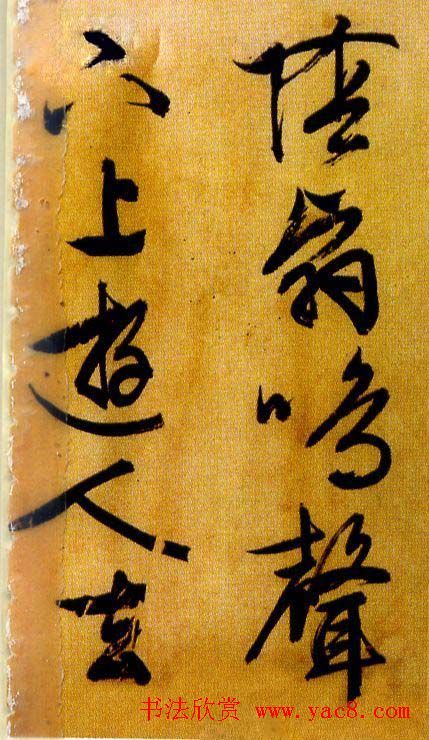 陰翳鳴聲
下上遊人去
书法欣赏 www.yac8.com